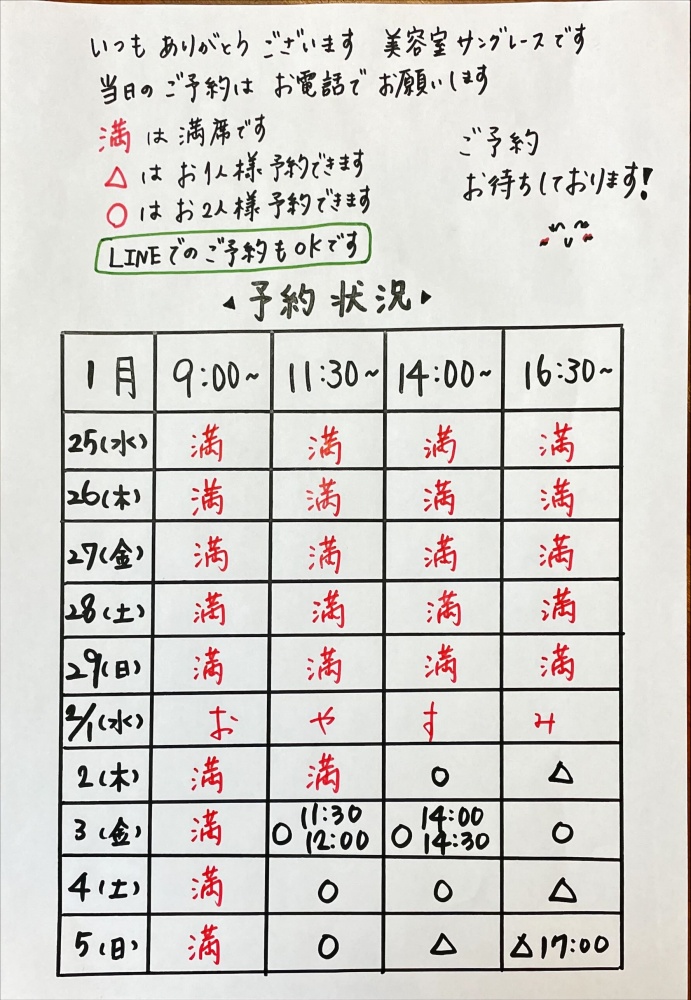 いつも ありがとう ございます 美容室 サングレースです
当日の ご予約は お電話で お願いします
満 は 満席です
△ は お1人様 予約できます
○ は お2人様 予約できます
LINEでの ご予約も OKです
ご予約
お待ちしております!
◀ 予約 状況 ▶
1月 9:00~ 11:30~ 14:00~ 16:30~
25(水) 満 満 満 満
26(木) 満 満 満 満
27(金) 満 満 満 満
28(土) 満 満 満 満
29(日) 満 満 満 満
2/1(水) お や す み
2(木) 満 満 ○ △
3(金) 満 ○ 11:30 12:00 ○ 14:00 14:30 ○
4(土) 満 ○ ○ △
5(日) 満 ○ △ △17:00